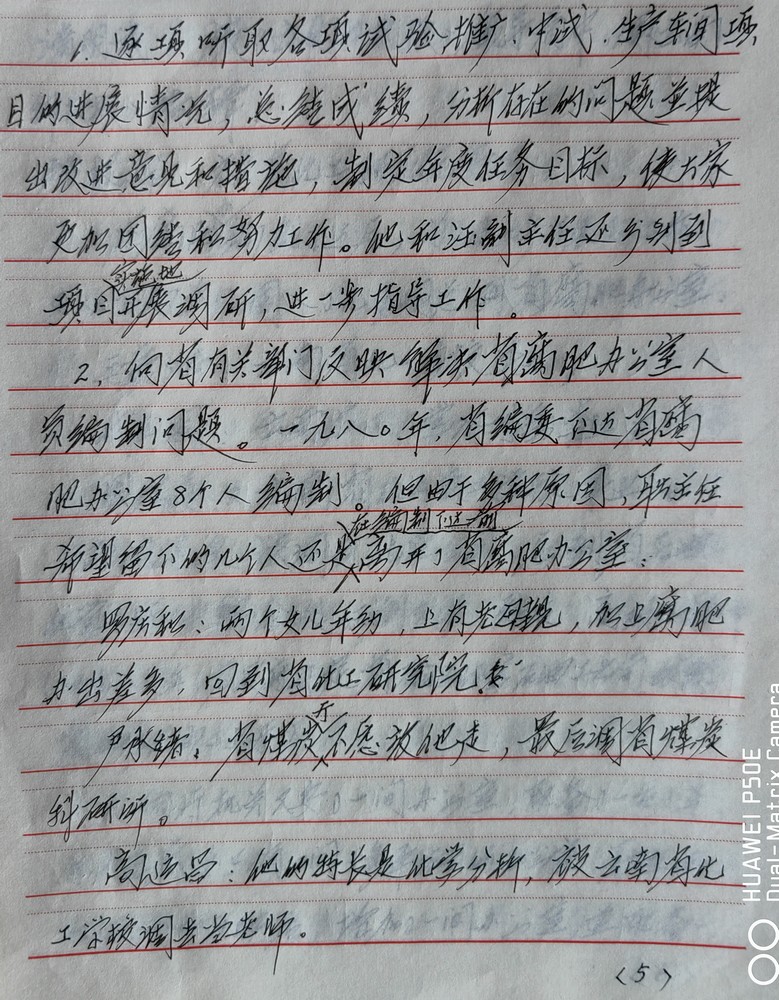 1. 逐项听取各项试验、推广、中试、生产车间项
目的进展情况，总结成绩，分析存在的问题並提
出改进意见和措施，制定年度任务目标，使大家
更加团结和努力工作。他和汪副主任还分别到
实施地
项目开展调研，进一步指导工作。
2、向省有关部门反映解决省腐肥办公室人
员编制问题。一九八〇年，省编委下达省腐
肥办公室8个人编制。但由于多种原因，耿主任
在编制下达前
希望留下的几个人还是离开了省腐肥办公室：
罗庆和：两个女儿年幼，上有老母親，加上腐肥
办出差多，回到省化工研究院。
尹永绪：省煤炭厅不愿放他走，最后调省煤炭
科研所。
高运昌：他的特长是化学分析，被云南省化
工学校调去当老师。
（5）
HUAWEI P50E
Dual-Matrix Camera